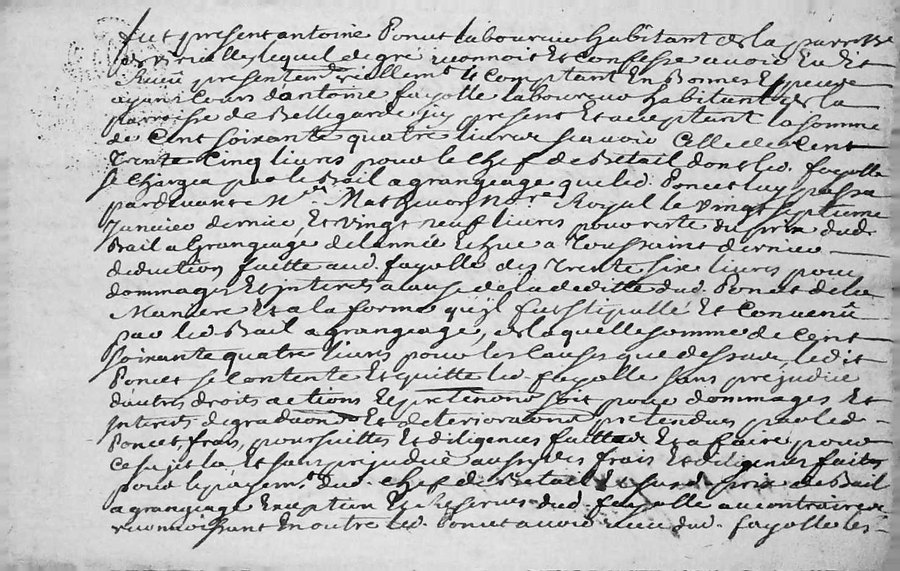 fut present antoine Poncet laboureur habitant de la parroisse
de virvielle lequel de gré reconnoit Et Confesse avoir Eu Et
Receu presentement reallement Et Comptant En Bonnes Especes
ayant Cours d'antoine fayolle laboureur habitant de la
parroisse de Bellegarde icy present Et acceptant la somme
de Cent soixante quatre livres scavoir Celle de Cent
Trente Cinq livres pour le Chef de Betail dont led. fayolle
se Chargea par le Bail a grangeage que led. Poncet luy passa
pardevant Me Mathevon Nore Royal le vingt septieme
Janvier dernier, Et vingt neuf livres pour reste du prix dud.
Bail a Grangeage de l'année Echue a Toussaint dernier
deduction faitte aud. fayolle des Trente six livres pour
dommages Et Interets a Cause de la deditte dud. Poncet de la
Maniere Et a la forme qu'il fut stipullé Et Convenû
par led. Bail a grangeage, de laquelle somme de Cent
soixante quatre livres pour les Causes que dessus, ledit
Poncet se Contente Et quitte led. fayolle sans prejudice
d'autres droits actions Et pretentions soit pour dommages Et
Interets degradations Et deteriorations pretendues par led.
Poncet frais, poursuittes Et diligences faittes Et a faire pour
Ce sujet la Et sans prejudice aussy des frais Et diligences faits
pour le payemt. dud. Chef de Betail Et susd. prix de Bail
a grangeage Exception Et Reserves dud. fayolle au contraire
reconnoissant En outre led. Poncet avoir receu dud. fayolle les